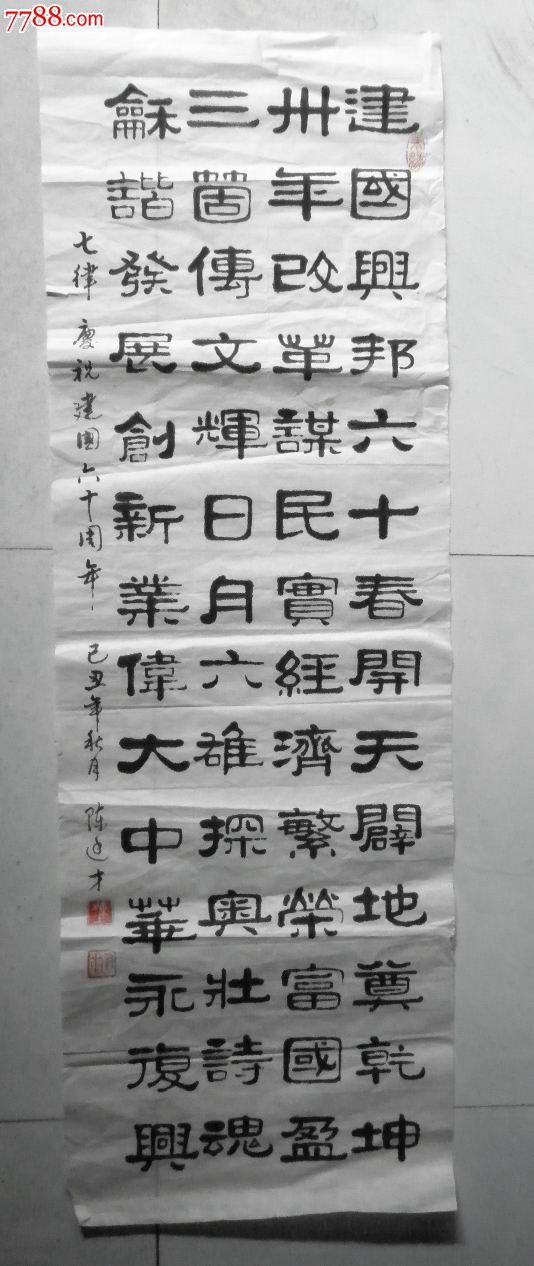 7788.com
建國興邦六十春開天闢地奠乾坤
卅年改革謀民實經濟繁榮富國盈
三箇傳文輝日月六雄探奥壯詩魂
龢諧發展創新業偉大中華永復興
七律 慶祝建國六十周年
己丑年秋月 陳廷才